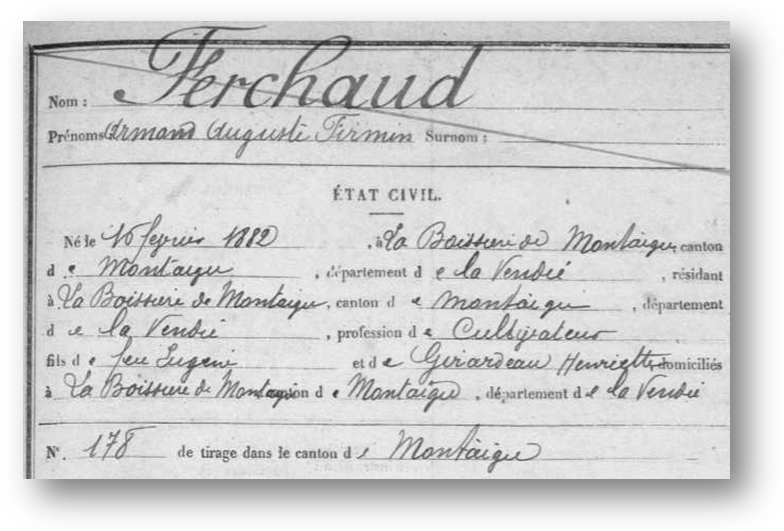 Nom : Ferchaud
Prénoms Armand Auguste Firmin Surnom :
ÉTAT CIVIL.
Né le 16 fevrier 1882 , à La Boissiere de Montaigu, canton
de Montaigu , département de la Vendée , résidant
à La Boissiere de Montaigu, canton de Montaigu , département
de la Vendée , profession de Cultivateur
fils de feu Eugene et de Girardeau Henriette, domiciliés
à La Boissiere de Montaigu, canton de Montaigu , département de la Vendée
N°. 178 de tirage dans le canton de Montaigu